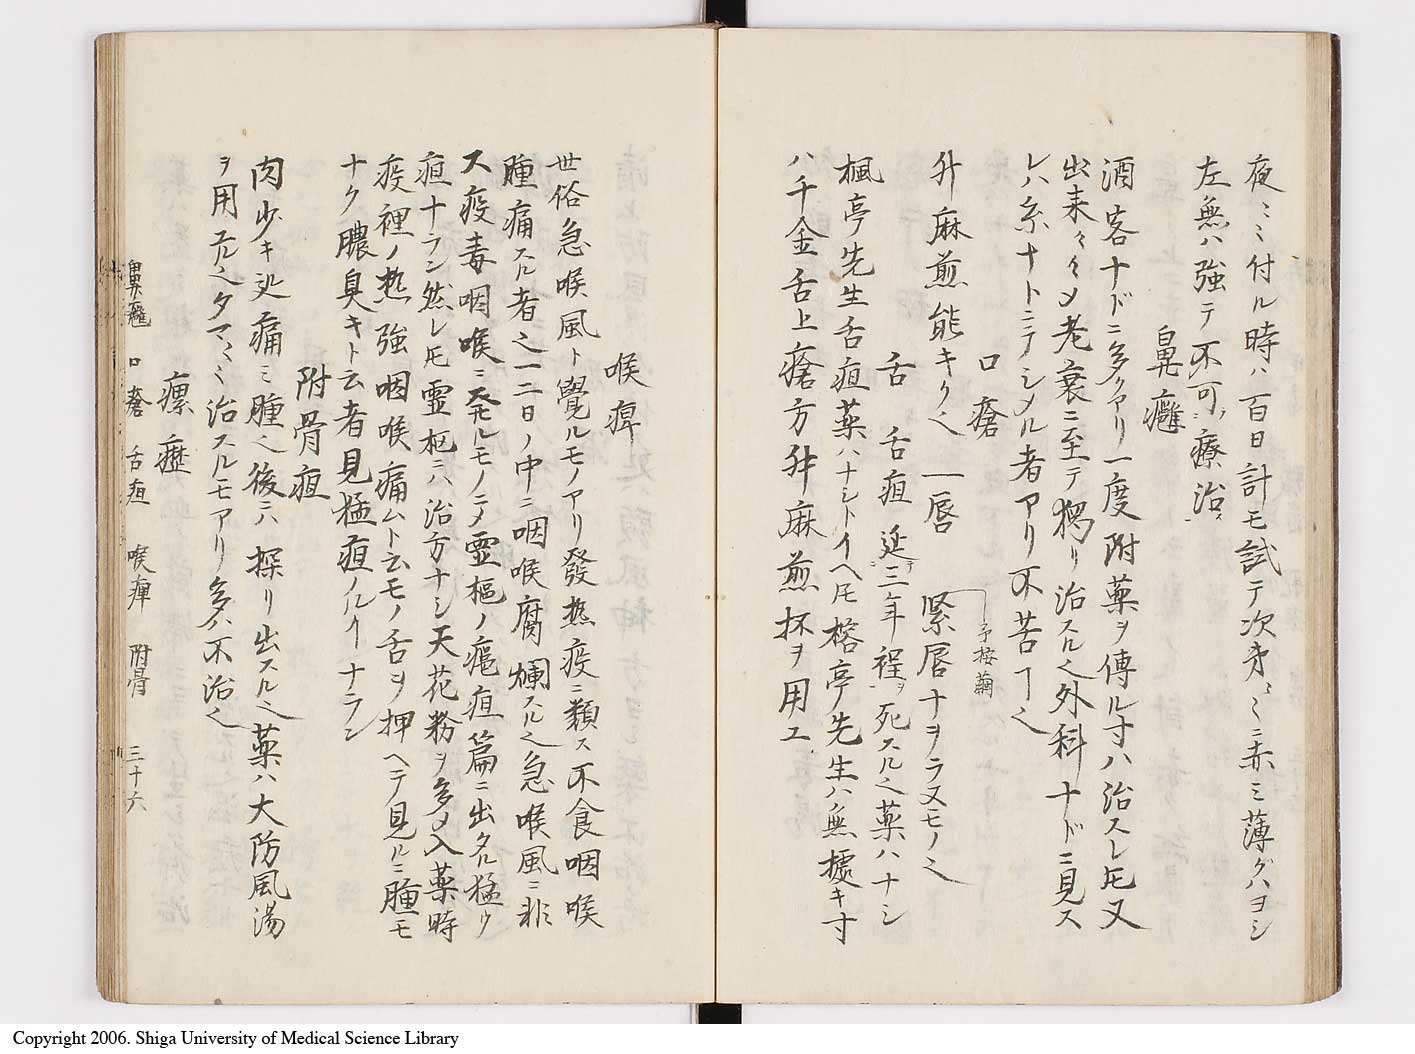 夜ミミ付ル時ハ百日計モ試テ次才〻ミニ赤ミ薄グハヨシ
左無ハ強テ不可療治ス
鼻癰
酒客ナドニ多クアリ一度附薬ヲ傳ル寸ハ治スレ𪜈又
出来々々メ老衰ニ至テ独リ治スル也外科ナドニ見ス
レハ糸ナトニテシメル者アリ不苦ヿ也
口瘡
升麻煎能キク也 一唇 緊唇ナヲラヌモノ也
予按繭
舌 舌疽 延テ三年程ヲ死スル也薬ハナシ
楓亭先生舌疽薬ハナシトイヘ𪜈榕亭先生ハ無據キ寸
ハ千金舌上瘡方升麻煎抔ヲ用エ
喉痺
世俗急喉風ト覺ルモノアリ發热疫ニ類ス不食咽喉
腫痛スル者之一二日ノ中ニ咽喉腐爛スル也急喉風ニ非
ス疫毒咽喉ニ発ルモノニメ霊樞ノ癰疽篇ニ出タル猛
疽ナラン然レ𪜈霊枢ニハ治方ナシ天花粉ヲ多メ入薬時
疫裡ノ热強咽喉痛ムト云モノ舌ヲ押ヘテ見ルニ腫モ
ナク膿臭キト云者見猛疽ノルイナラン
附骨疽
肉少キ処痛ミ腫也後ニハ探リ出スル也薬ハ大防風湯
ヲ用エル也タマ〻ミ治スルモアリ多ハ不治也
瘰癧
鼻癰 口瘡 舌疽 喉痺 附骨 三十六
Copyright 2006. Shiga University of Medical Science Library